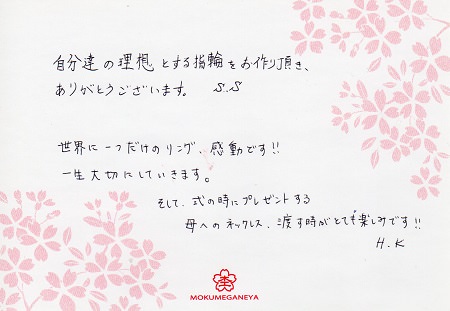 自分達の理想とする指輪をお作り頂き、
ありがとうございます。 S.S
世界に一つだけのリング、感動です!!
一生大切にしていきます。
そして、式の時にプレゼントする
母へのネックレス、渡す時がとても楽しみです!!
H.K
MOKUMEGANEYA